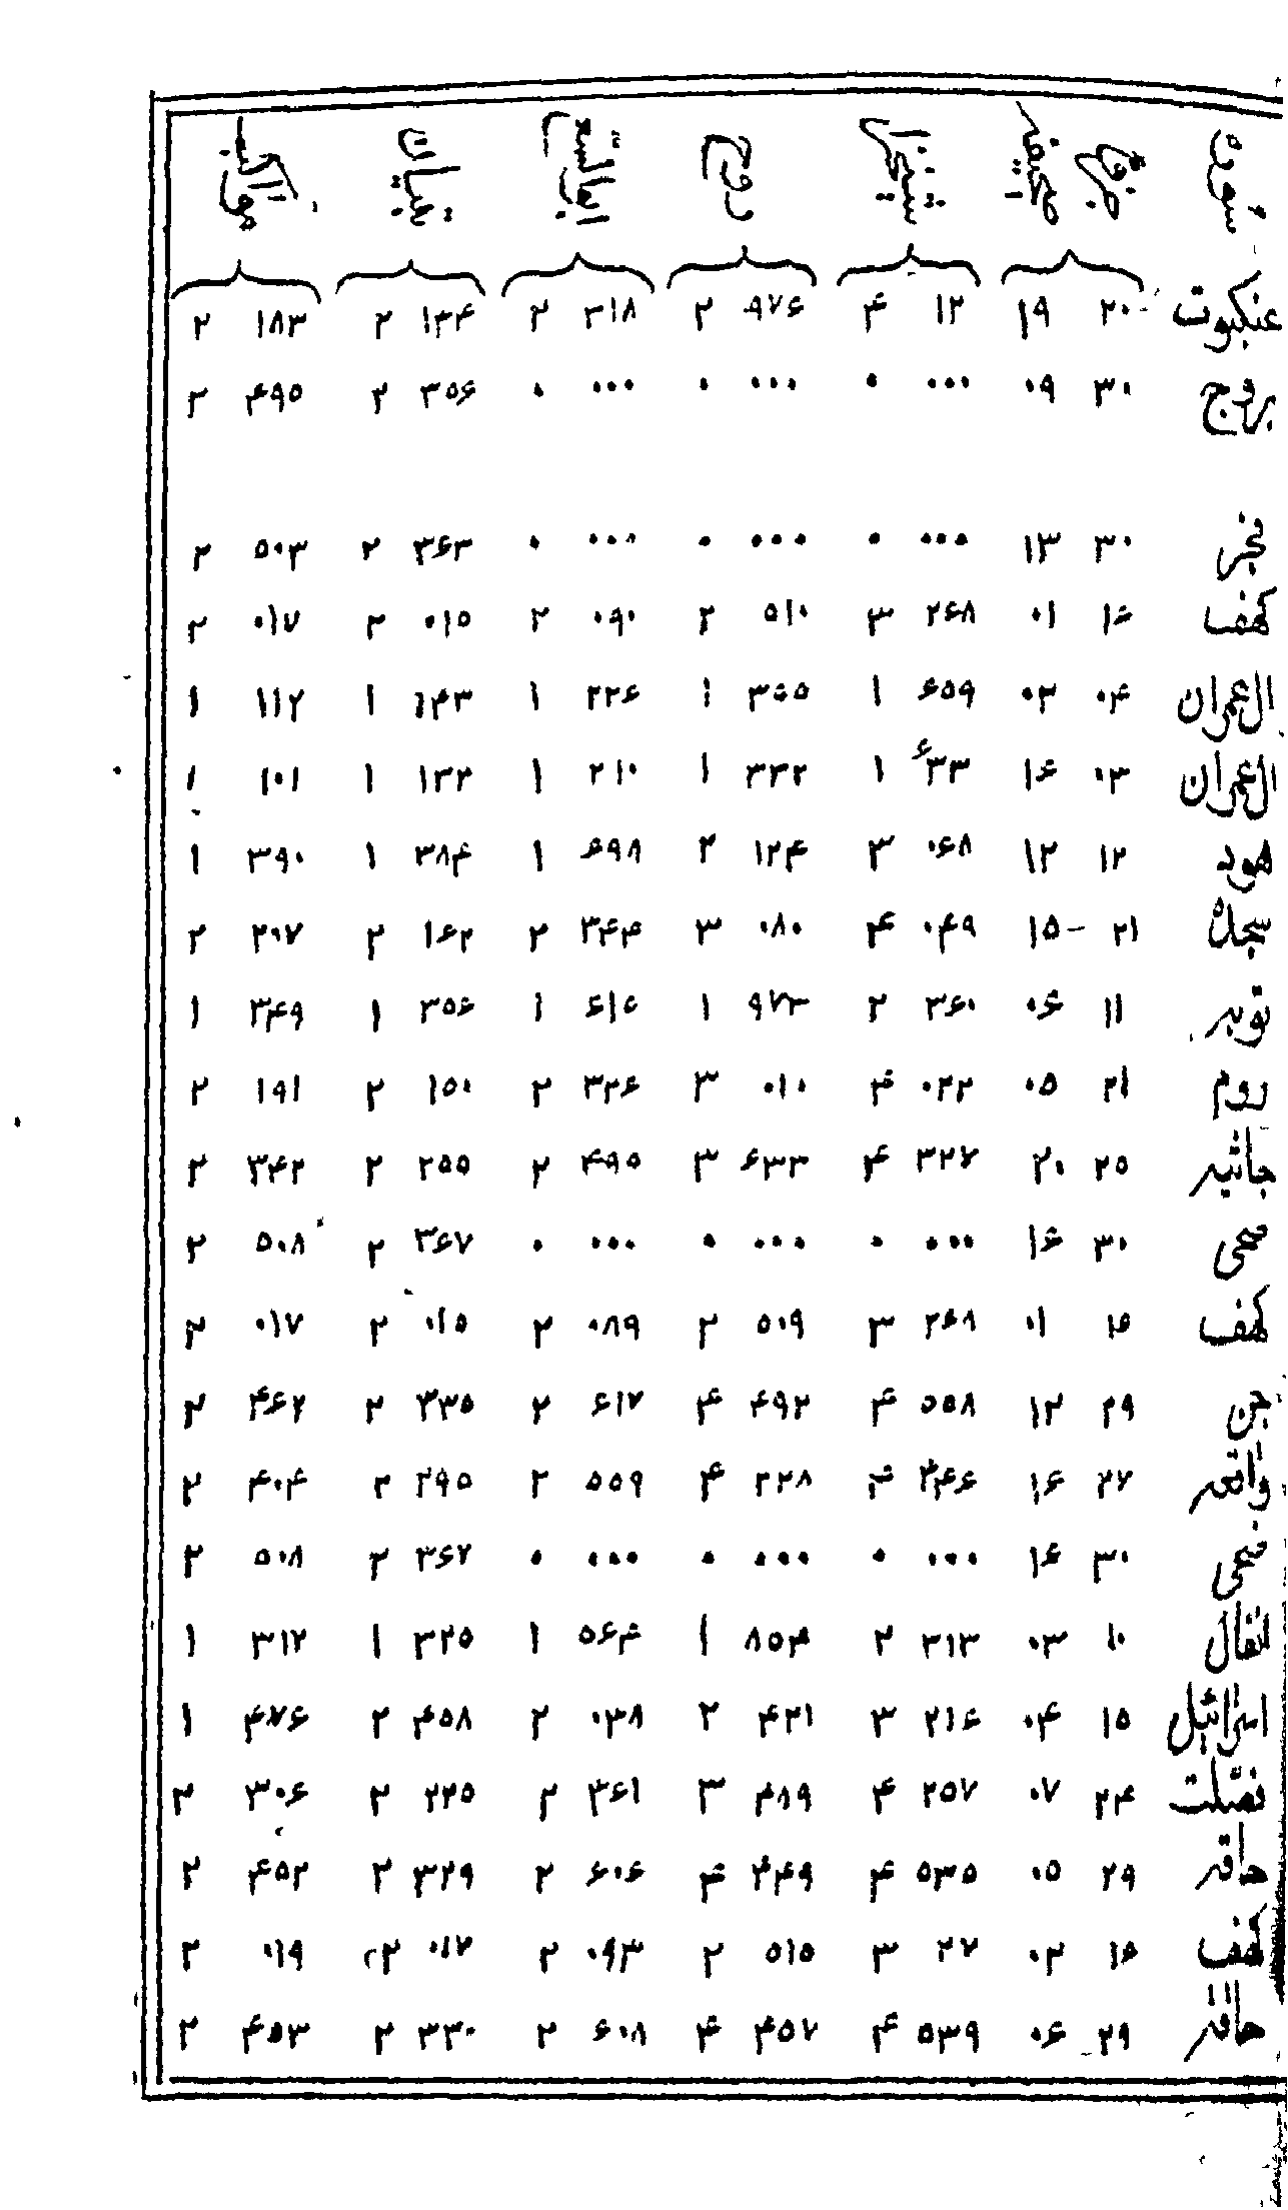 سوره جزو صحیفه شیخ زاده روح ابو السعود تبیان مواکب
عنکبوت ۲۰ ۱۹ ۱۲ ۴ ۹۷۶ ۲ ۳۱۸ ۲ ۱۳۴ ۲ ۱۸۳ ۲
بروج ۳۰ ۰۹ ۰۰۰ ۰ ۰۰۰ ۰ ۰۰۰ ۰ ۳۵۶ ۲ ۴۹۵ ۲
فجر ۳۰ ۱۳ ۰۰۰ ۰ ۰۰۰ ۰ ۰۰۰ ۰ ۳۶۳ ۲ ۵۰۳ ۲
کهف ۱۶ ۰۱ ۲۶۸ ۳ ۵۱۰ ۲ ۰۹۰ ۲ ۰۱۵ ۲ ۰۱۷ ۲
ال عمران ۰۴ ۰۳ ۶۵۹ ۱ ۳۵۵ ۱ ۲۲۶ ۱ ۱۴۳ ۱ ۱۱۲ ۱
ال عمران ۰۳ ۱۶ ۶۳۳ ۱ ۳۳۲ ۱ ۲۱۰ ۱ ۱۳۲ ۱ ۱۰۱ ۱
هود ۱۲ ۱۲ ۰۶۸ ۳ ۱۲۴ ۲ ۶۹۸ ۱ ۳۸۴ ۱ ۳۹۰ ۱
سجده ۲۱ - ۱۵ ۰۴۹ ۴ ۰۸۰ ۳ ۳۴۴ ۲ ۱۶۲ ۲ ۲۰۷ ۲
توبه ۱۱ ۰۶ ۳۶۰ ۲ ۹۷۳ ۱ ۶۱۶ ۱ ۳۵۶ ۱ ۳۴۹ ۱
روم ۲۱ ۰۵ ۰۲۲ ۴ ۰۱۰ ۳ ۳۲۶ ۲ ۱۵۰ ۲ ۱۹۱ ۲
جاثیه ۲۵ ۲۰ ۳۲۷ ۴ ۶۳۳ ۳ ۴۹۵ ۲ ۲۵۵ ۲ ۳۴۲ ۲
ضحی ۳۰ ۱۶ ۰۰۰ ۰ ۰۰۰ ۰ ۰۰۰ ۰ ۳۶۷ ۲ ۵۰۸ ۲
کهف ۱۵ ۰۱ ۲۶۸ ۳ ۵۰۹ ۲ ۰۸۹ ۲ ۰۱۵ ۲ ۰۱۷ ۲
جن ۲۹ ۱۲ ۵۵۸ ۴ ۴۹۲ ۴ ۶۱۷ ۲ ۳۳۵ ۲ ۴۶۲ ۲
واقعه ۲۷ ۱۶ ۴۴۶ ۴ ۲۲۸ ۴ ۵۵۹ ۲ ۲۹۵ ۲ ۴۰۴ ۲
ضحی ۳۰ ۱۶ ۰۰۰ ۰ ۰۰۰ ۰ ۰۰۰ ۰ ۳۶۷ ۲ ۵۰۸ ۲
انفال ۱۰ ۰۳ ۳۱۳ ۲ ۸۵۴ ۱ ۵۶۴ ۱ ۳۲۵ ۱ ۳۱۲ ۱
اسرائیل ۱۵ ۰۴ ۲۱۶ ۳ ۴۲۱ ۲ ۰۳۸ ۲ ۴۵۸ ۲ ۴۷۶ ۱
فصلت ۲۴ ۰۷ ۲۵۷ ۴ ۴۸۹ ۳ ۳۶۱ ۲ ۲۲۵ ۲ ۳۰۶ ۲
حاقه ۲۹ ۰۵ ۵۳۵ ۴ ۴۴۹ ۴ ۶۰۶ ۲ ۳۲۹ ۲ ۴۵۲ ۲
کهف ۱۵ ۰۲ ۲۷ ۳ ۵۱۵ ۲ ۰۹۳ ۲ ۰۱۷ ۲ ۰۱۹ ۲
حاقه ۲۹ ۰۶ ۵۳۹ ۴ ۴۵۷ ۴ ۶۰۸ ۲ ۳۳۰ ۲ ۴۵۳ ۲